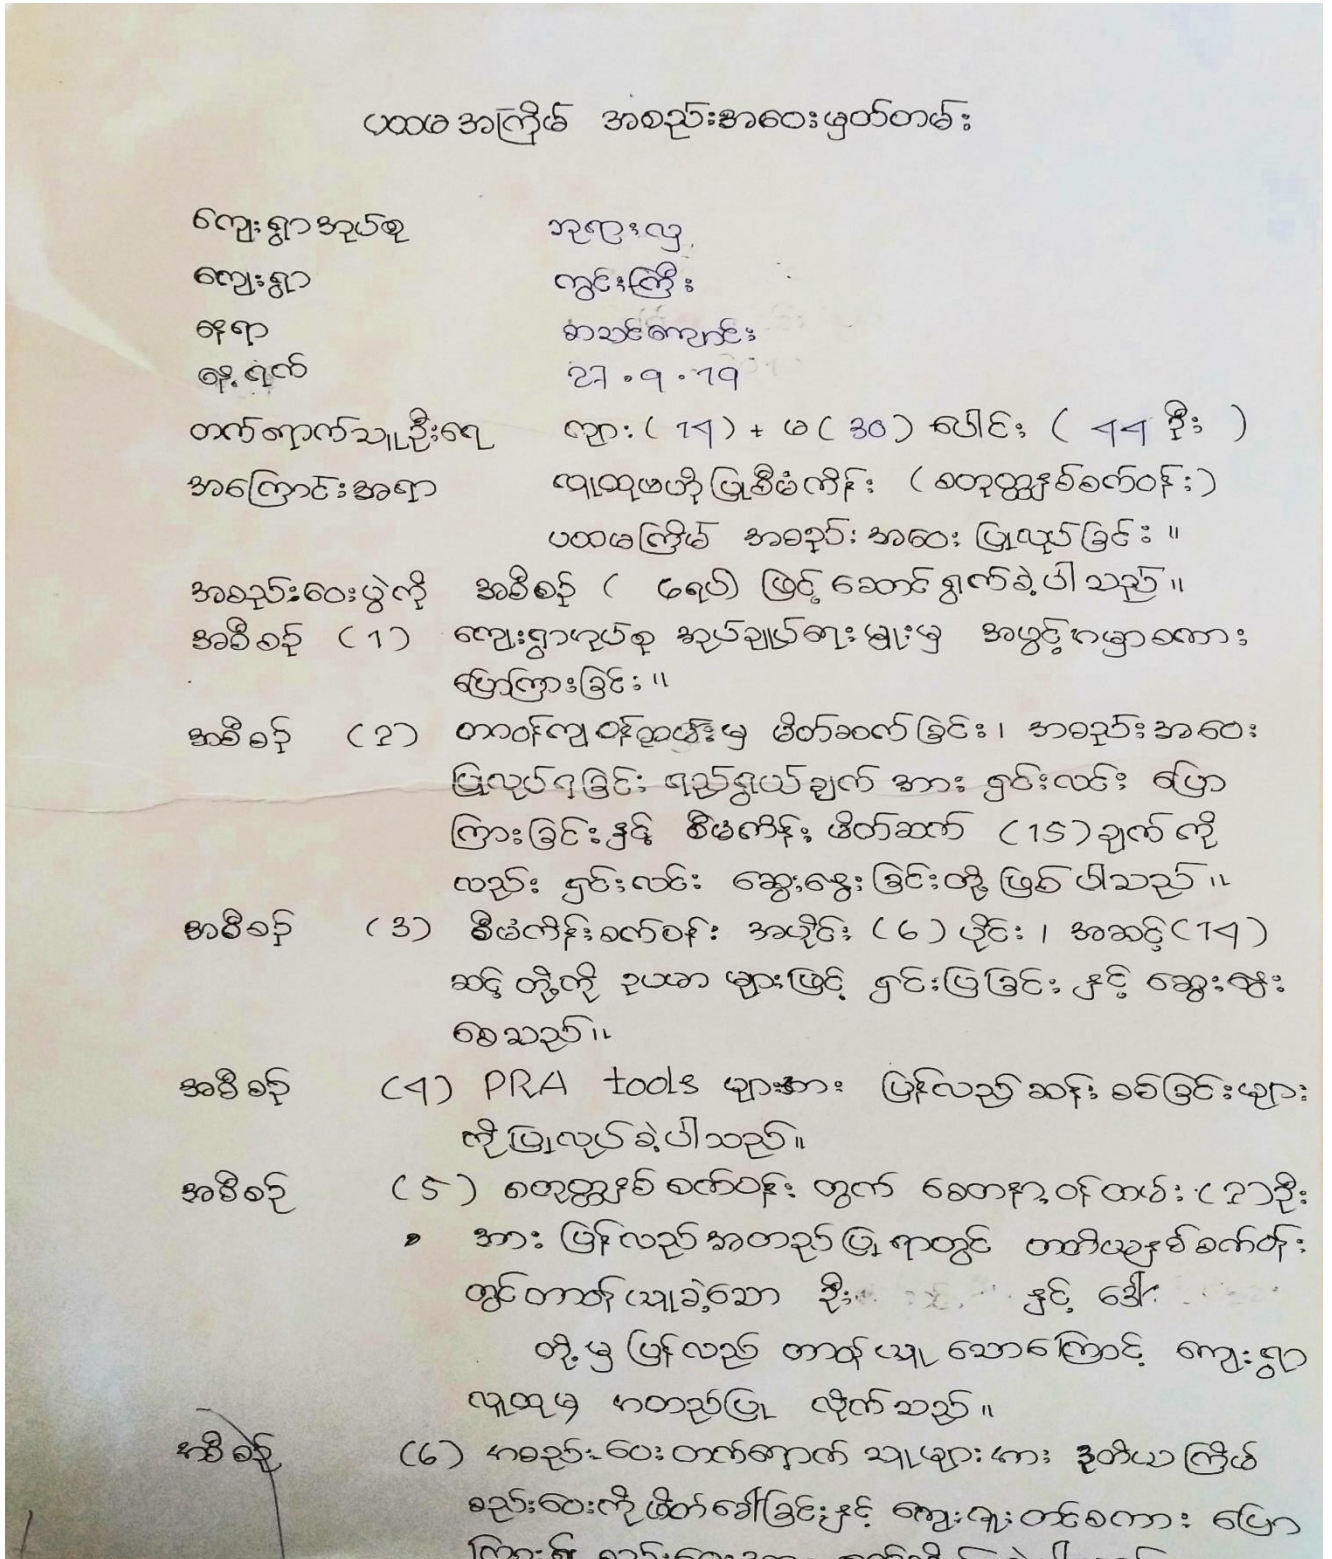 ပထမအကြိမ် အစည်းအဝေးမှတ်တမ်း
ကျေးရွာအုပ်စု ဘုရားလှ
ကျေးရွာ ကွင်းကြီး
နေရာ စာသင်ကျောင်း
နေ့ရက် 27.9.19
တက်ရောက်သူဦးရေ ကျား(14) + မ(30) ပေါင်း (44 ဦး)
အကြောင်းအရာ လူထုဗဟိုပြုစီမံကိန်း (စတုတ္ထနှစ်စက်ဝန်း)
ပထမကြိမ် အစည်းအဝေး ပြုလုပ်ခြင်း။
အစည်းဝေးပွဲကို အစီစဉ် ( 6ရပ်) ဖြင့် ဆောင်ရွက်ခဲ့ပါသည်။
အစီစဉ် (1) ကျေးရွာအုပ်စု အုပ်ချုပ်ရေးမှူးမှ အဖွင့်အမှာစကား
ပြောကြားခြင်း။
အစီစဉ် (2) တာဝန်ကျဝန်ထမ်းမှ မိတ်ဆက်ခြင်း၊ အစည်းအဝေး
ပြုလုပ်ရခြင်း ရည်ရွယ်ချက် အား ရှင်းလင်း ပြော
ကြားခြင်းနှင့် စီမံကိန်း မိတ်ဆက် (15)ချက် ကို
လည်း ရှင်းလင်း ဆွေးနွေးခြင်းတို့ ဖြစ်ပါသည်။
အစီစဉ် (3) စီမံကိန်းစက်ဝန်း အပိုင်း (6) ပိုင်း၊ အဆင့်(14)
ဆင့် တို့ကို ဥပမာ များဖြင့် ရှင်းပြခြင်း နှင့် ဆွေးနွေး
စေသည်။
အစီစဉ် (4) PRA tools များအား ပြန်လည်ဆန်းစစ်ခြင်းများ
ကိုပြုလုပ်ခဲ့ပါသည်။
အစီစဉ် (5) စတုတ္ထနှစ် စက်ဝန်း တွက် စေတနာ့ဝန်ထမ်း (2)ဦး
အား ပြန်လည်အတည်ပြုရာတွင် တတိယနှစ်စက်ဝန်း
တွင်တာဝန်ယူခဲ့သော ဦး နှင့် ဒေါ်
တို့မှ ပြန်လည် တာဝန်ယူ သောကြောင့် ကျေးရွာ
လူထုမှ အတည်ပြု လိုက်သည်။
အစီစဉ် (6) အစည်းဝေးတက်ရောက် သူများအား ဒုတိယကြိမ်
စည်းဝေးကိုဖိတ်ခေါ်ခြင်းနှင့် ကျေးဇူးတင်စကား ပြော